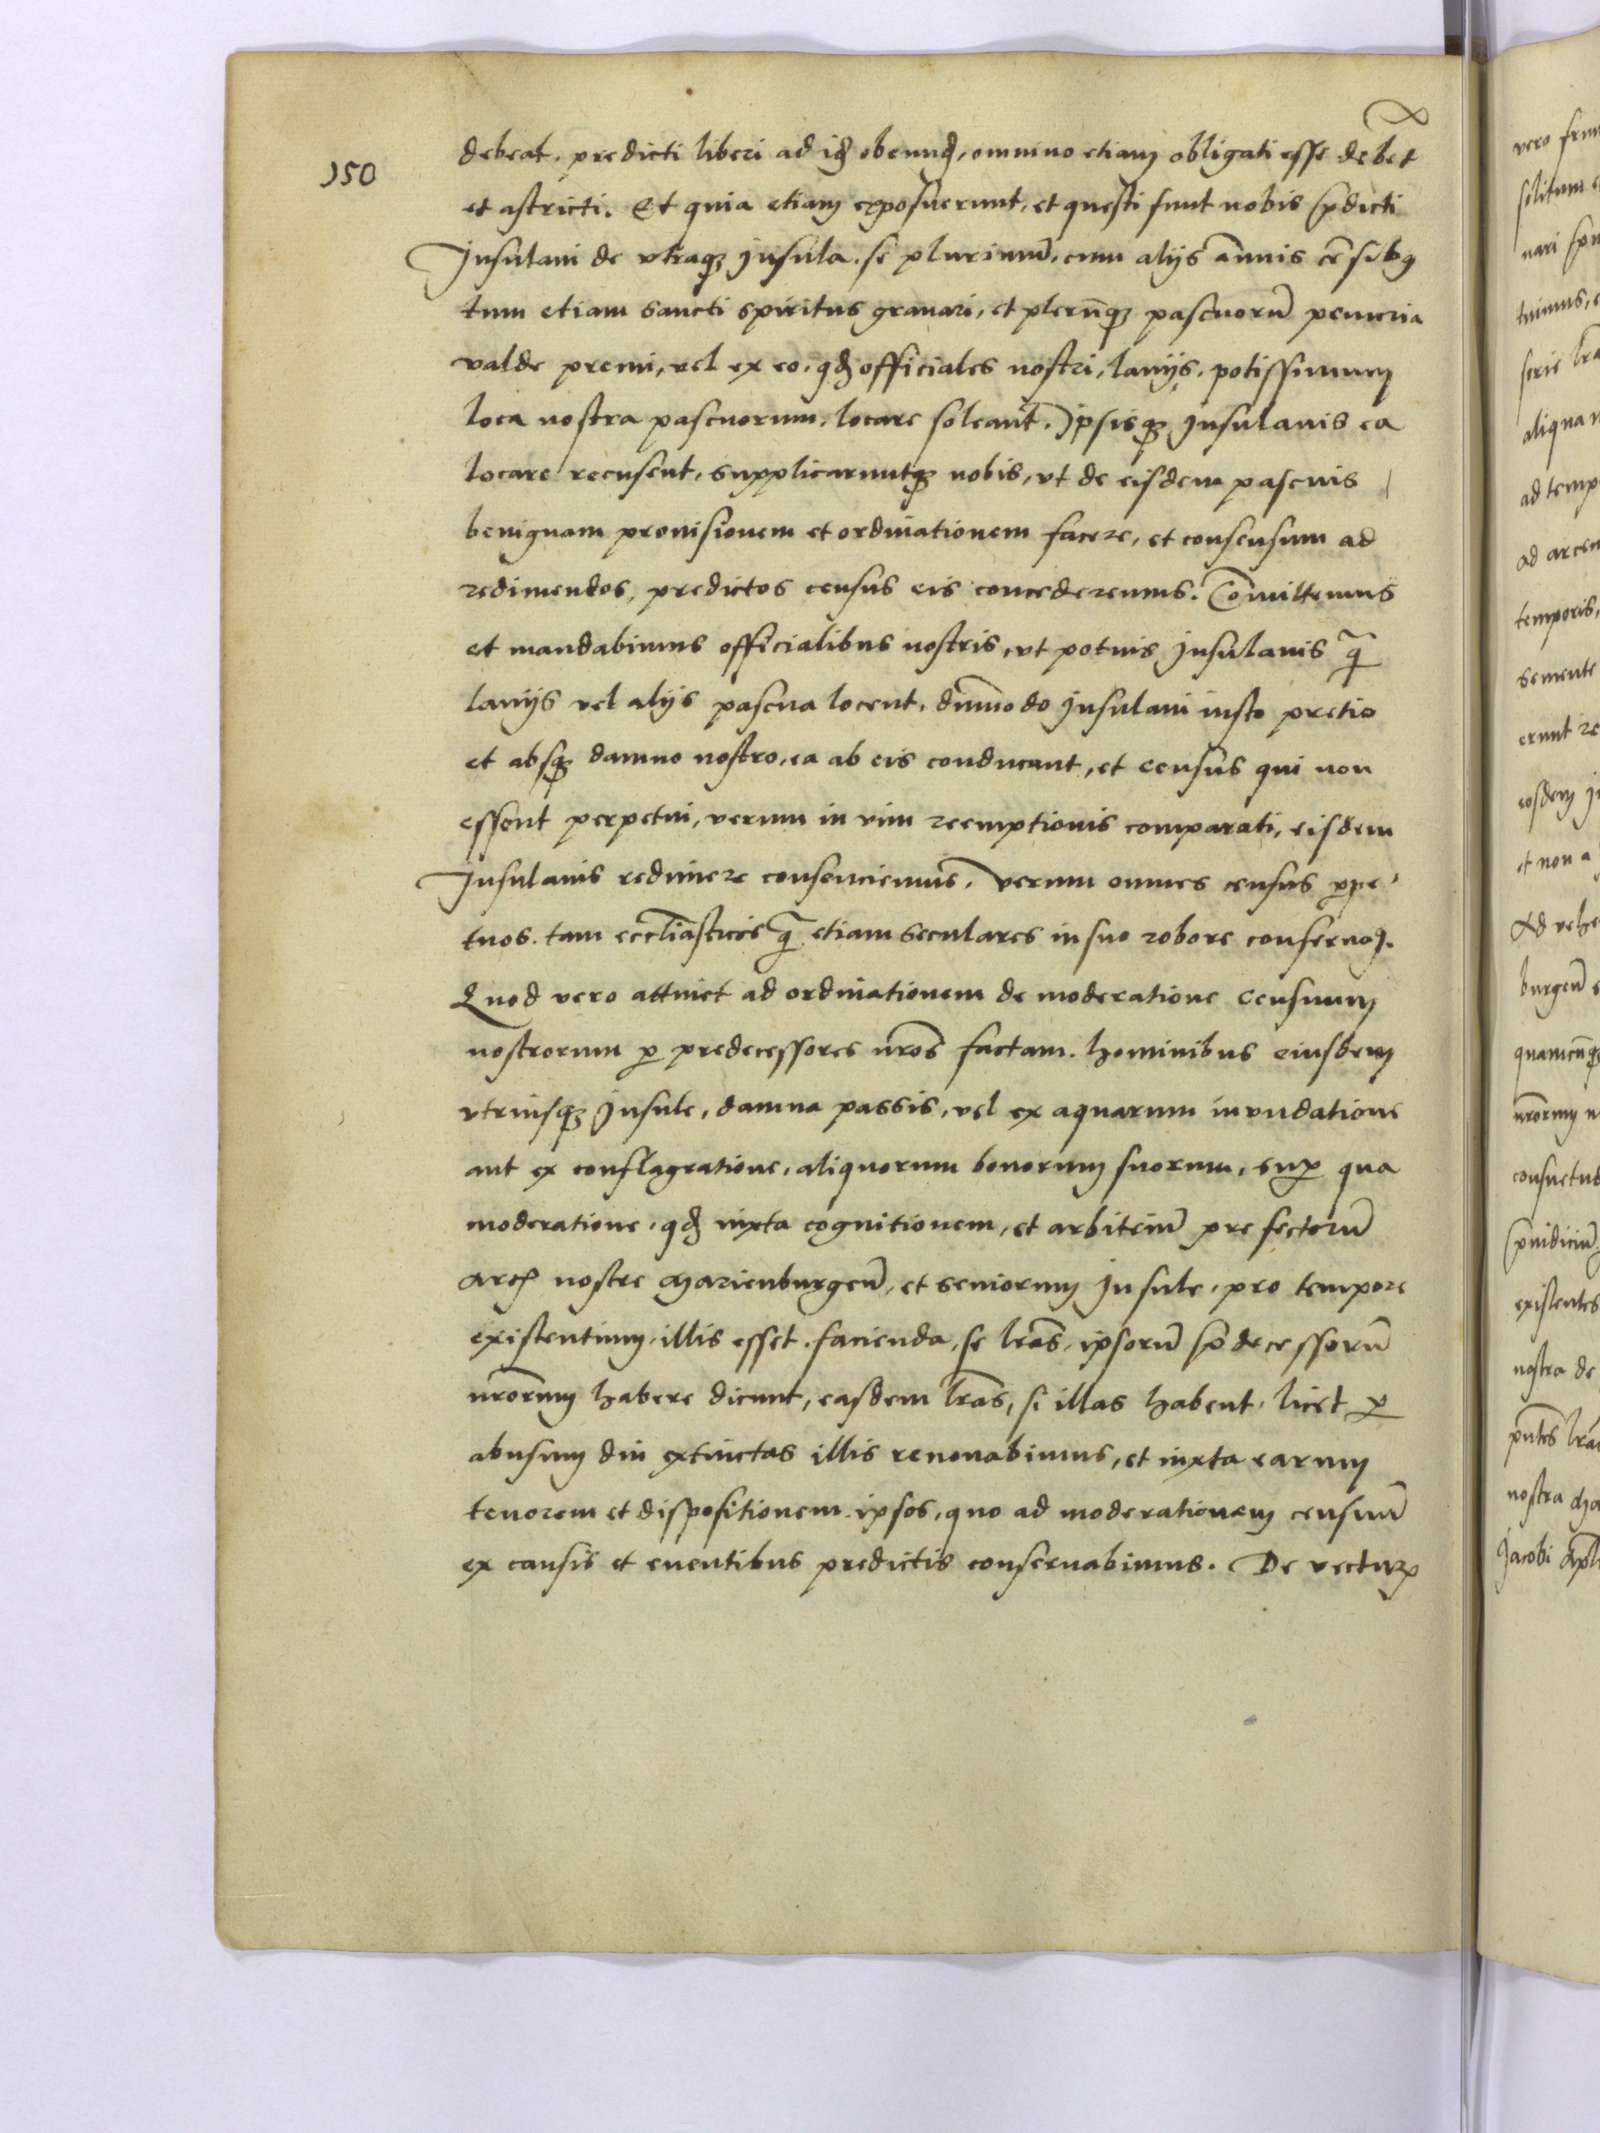 150
debeat. predicti liberi ad iḋ obeunḋ, omnino etiam obligati esse debēt
et astricti. Et quia etiam exposuerunt, et questi sunt nobis p̄dicti
Insulani de utraqꝫ Insula. se plurimū, cum alijs annuis cēsibꝰ
tum etiam sancti spiritus grauari, et plerūqꝫ pascuorū penuria
valde premi, vel ex eo, qḋ officiales nostri, lanijs, potissimum
loca nostra pascuorum, locare soleant. Ipsisqꝫ Insulanis ea
locare recusent, supplicaruntqꝫ nobis, ut de eisdem pascuis
benignam prouisionem et ordinationem facere, et consensum ad
redimendos, predictos census eis concederemus. Cōmittemus
et mandabimus officialibus nostris, ut potius Insulanis q̄
lanijs vel alijs pascua locent, dūmodo Insulani iusto pretio
et absqꝫ damno nostro, ea ab eis conducant, et census qui non
essent perpetui, verum in vim reemptionis comparati, eisdem
Insulanis redimere consenciemus. Verum omnes census ꝑpe-
tuos. tam eccliāsticos q̄ etiam seculares in suo robore conseruoꝫ.
Quod vero attinet ad ordinationem de moderatione censuum
nostrorum ꝑ predecessores nr̄os factam. hominibus eiusdem
utriusqꝫ Insule, damna passis, vel ex aquarum inundatione
aut ex conflagratione, aliquorum bonorum suorum, suꝑ qua
moderatione, qḋ iuxta cognitionem, et arbitriū prefectorū
Arcꝭ nostre Marienburgeñ, et seniorum Insule, pro tempore
existentium, illis esset facienda, se lrās, ipsorū p̄decessorū
nr̄orum habere dicunt, easdem lrās, si illas habent, licet ꝑ
abusum diu extinctas illis renouabimus, et iuxta earum
tenorem et dispositionem ipsos, quo ad moderationem censuū
ex causis et euentibus predictis conseruabimus. De vecturꝭ
vero
solitum
nari
tuimus,
serie
aliqua
ad temp
ad arcem
temporis,
semente
erunt re
eosdem
et non a
Ad vehe
burgeñ
quamcūqꝫ
nr̄orum
consuetud
p̄iudiciū
existentes
nostra de
pñtes
nostra Ma
Jacobi Apli